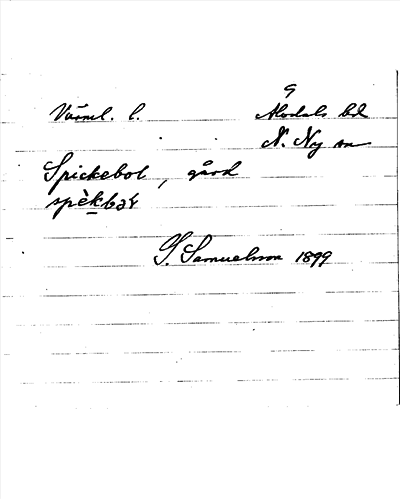 Värml. l. Älvdals hd
N. Ny sn
Spickebol, gård
S. Samuelsson 1899